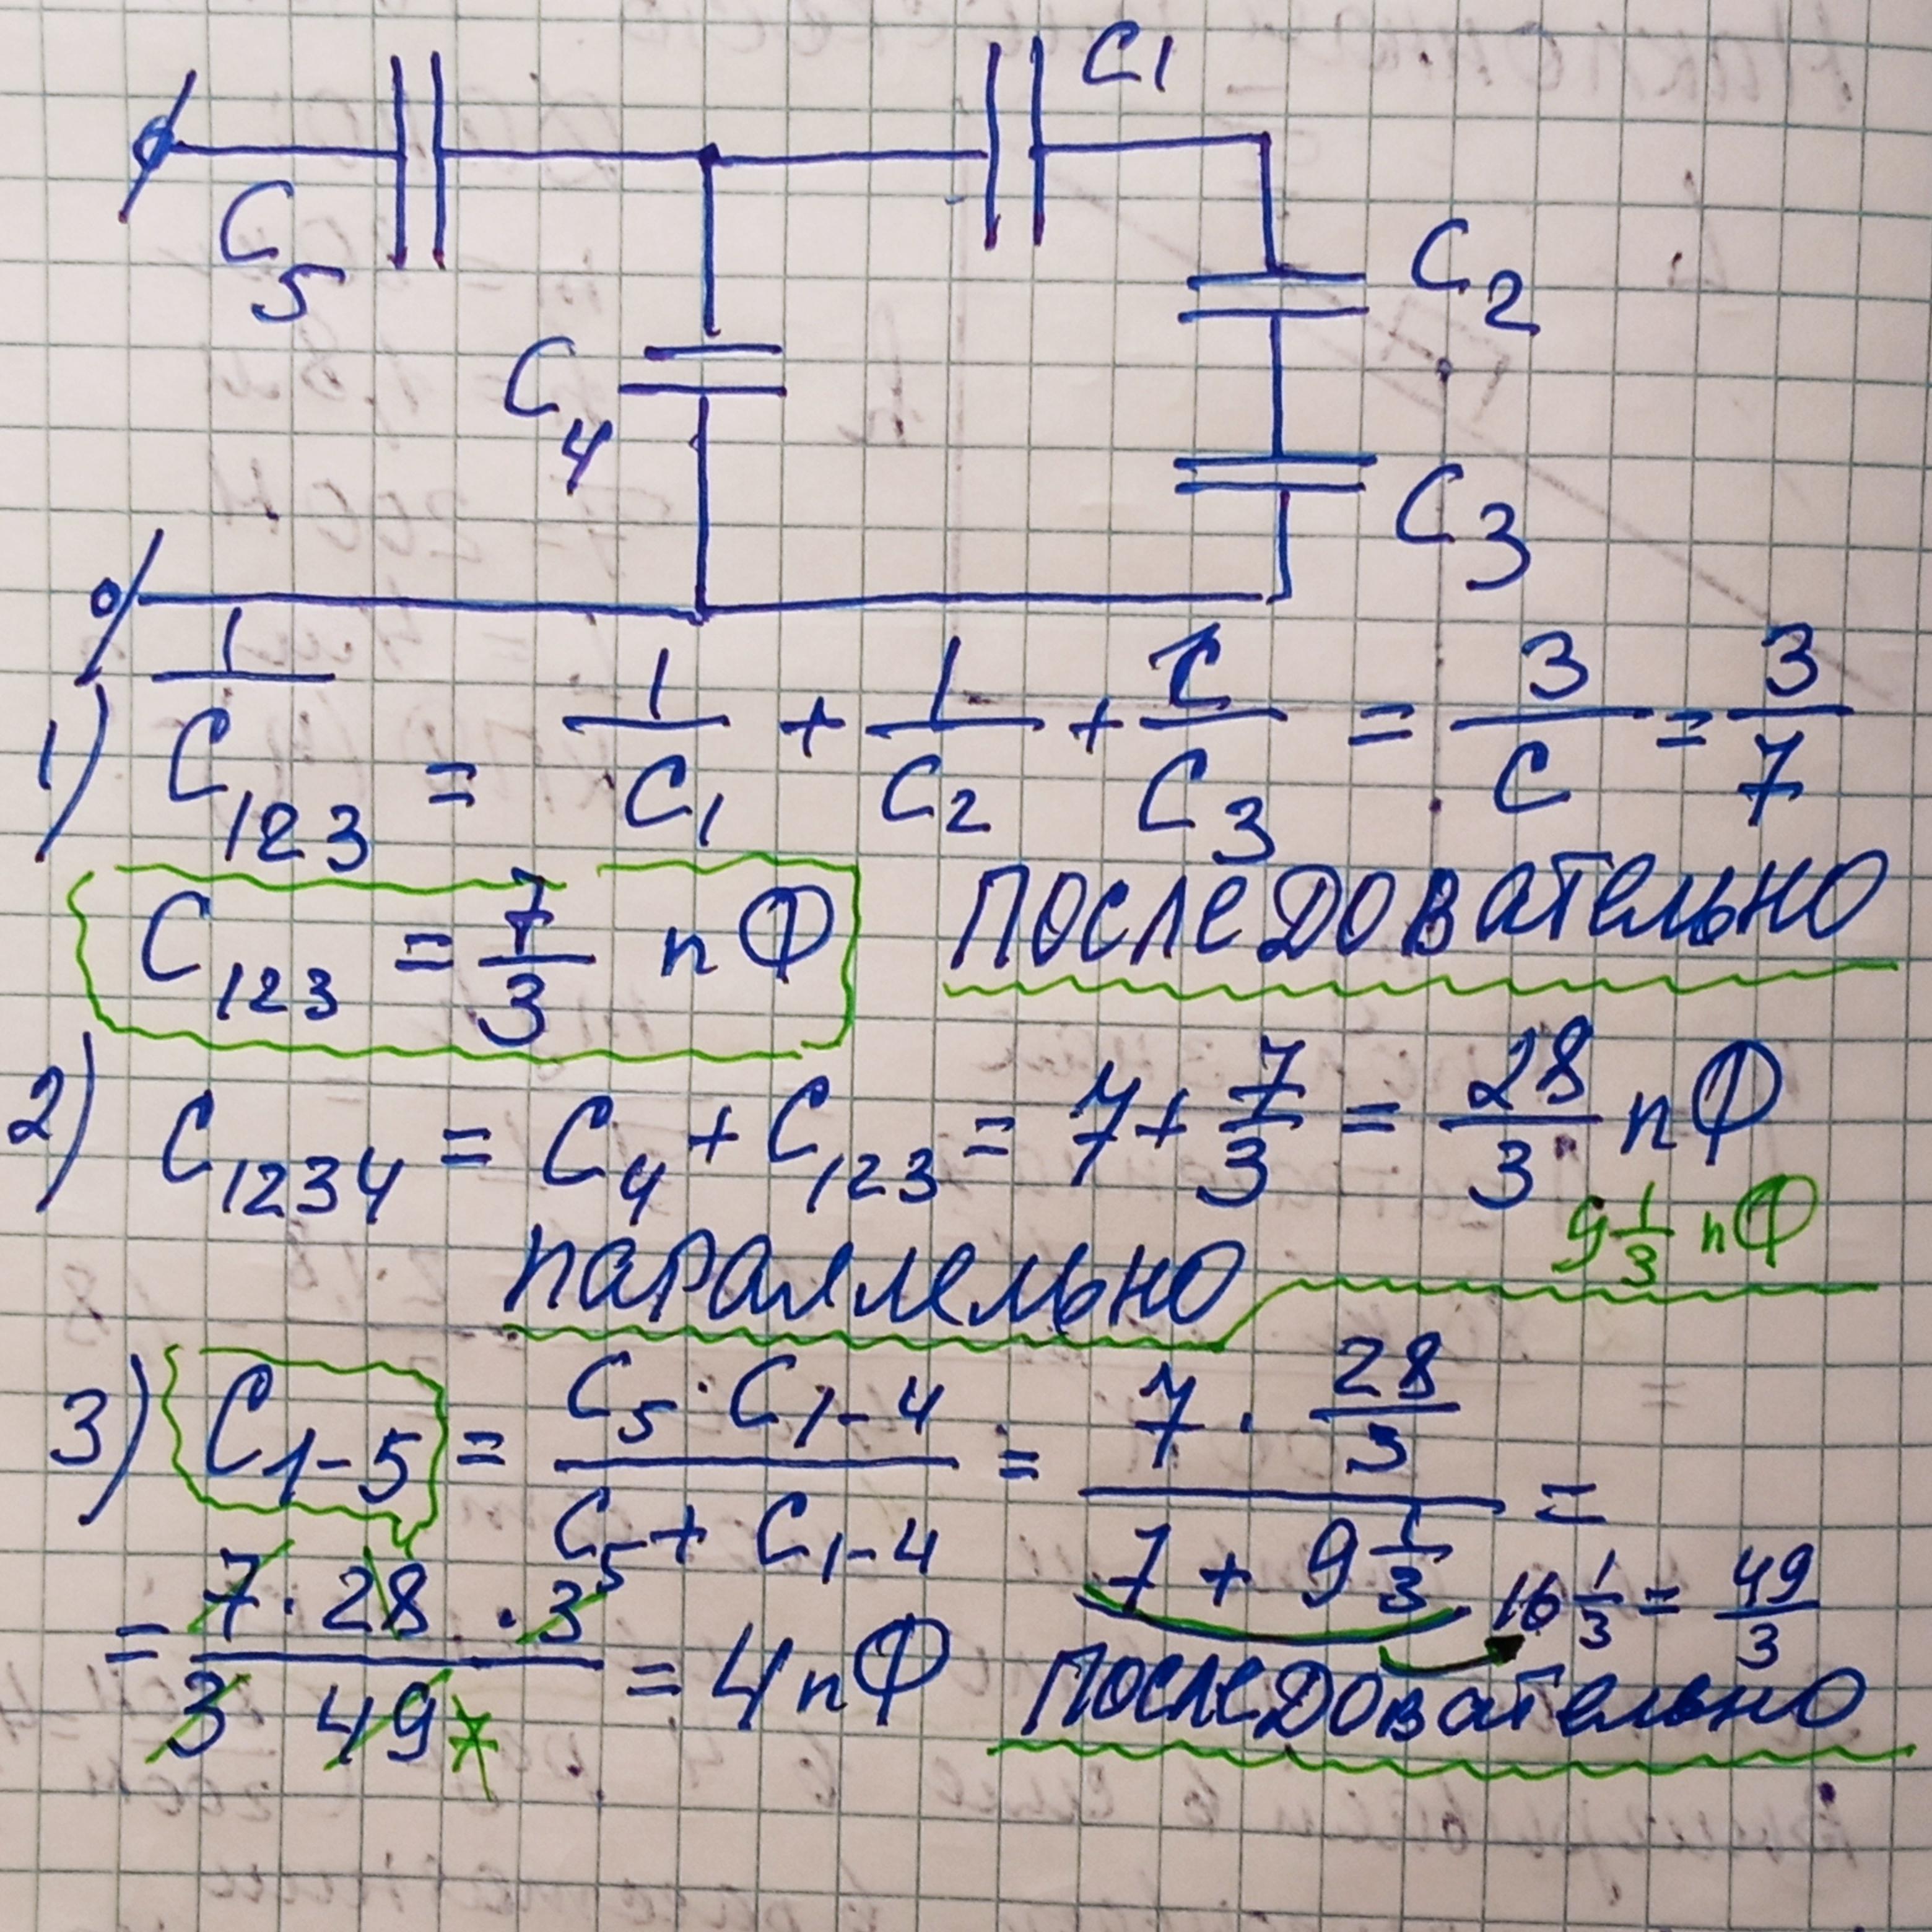 C1
C5
C2
C4
C3
1) 1/C123 = 1/C1 + 1/C2 + 1/C3 = 3/C = 3/7
C123 = 7/3 пФ последовательно
2) C1234 = C4 + C123 = 7 + 7/3 = 28/3 пФ
9 1/3 пФ
параллельно
3) C1-5 = C5 · C1-4 / C5 + C1-4 = 7 · 28/3 / 7 + 9 1/3 =
16 1/3 = 49/3
= 7 · 28 · 3 / 3 49 = 4 пФ последовательно